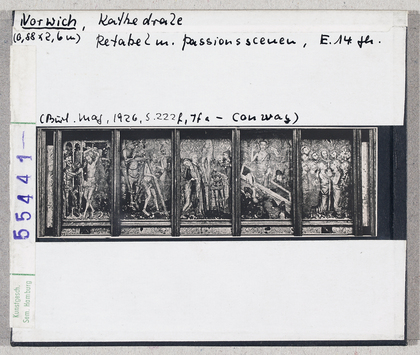 Norwich, Kathedrale
(0,88 x 2,6 m)
Retabel m. Passionsscenen, E. 14 Jh.
(Burl. Mag, 1926, S. 222f, Tfa – Conway)
55441–
Kunstgesch.
Sem. Hamburg